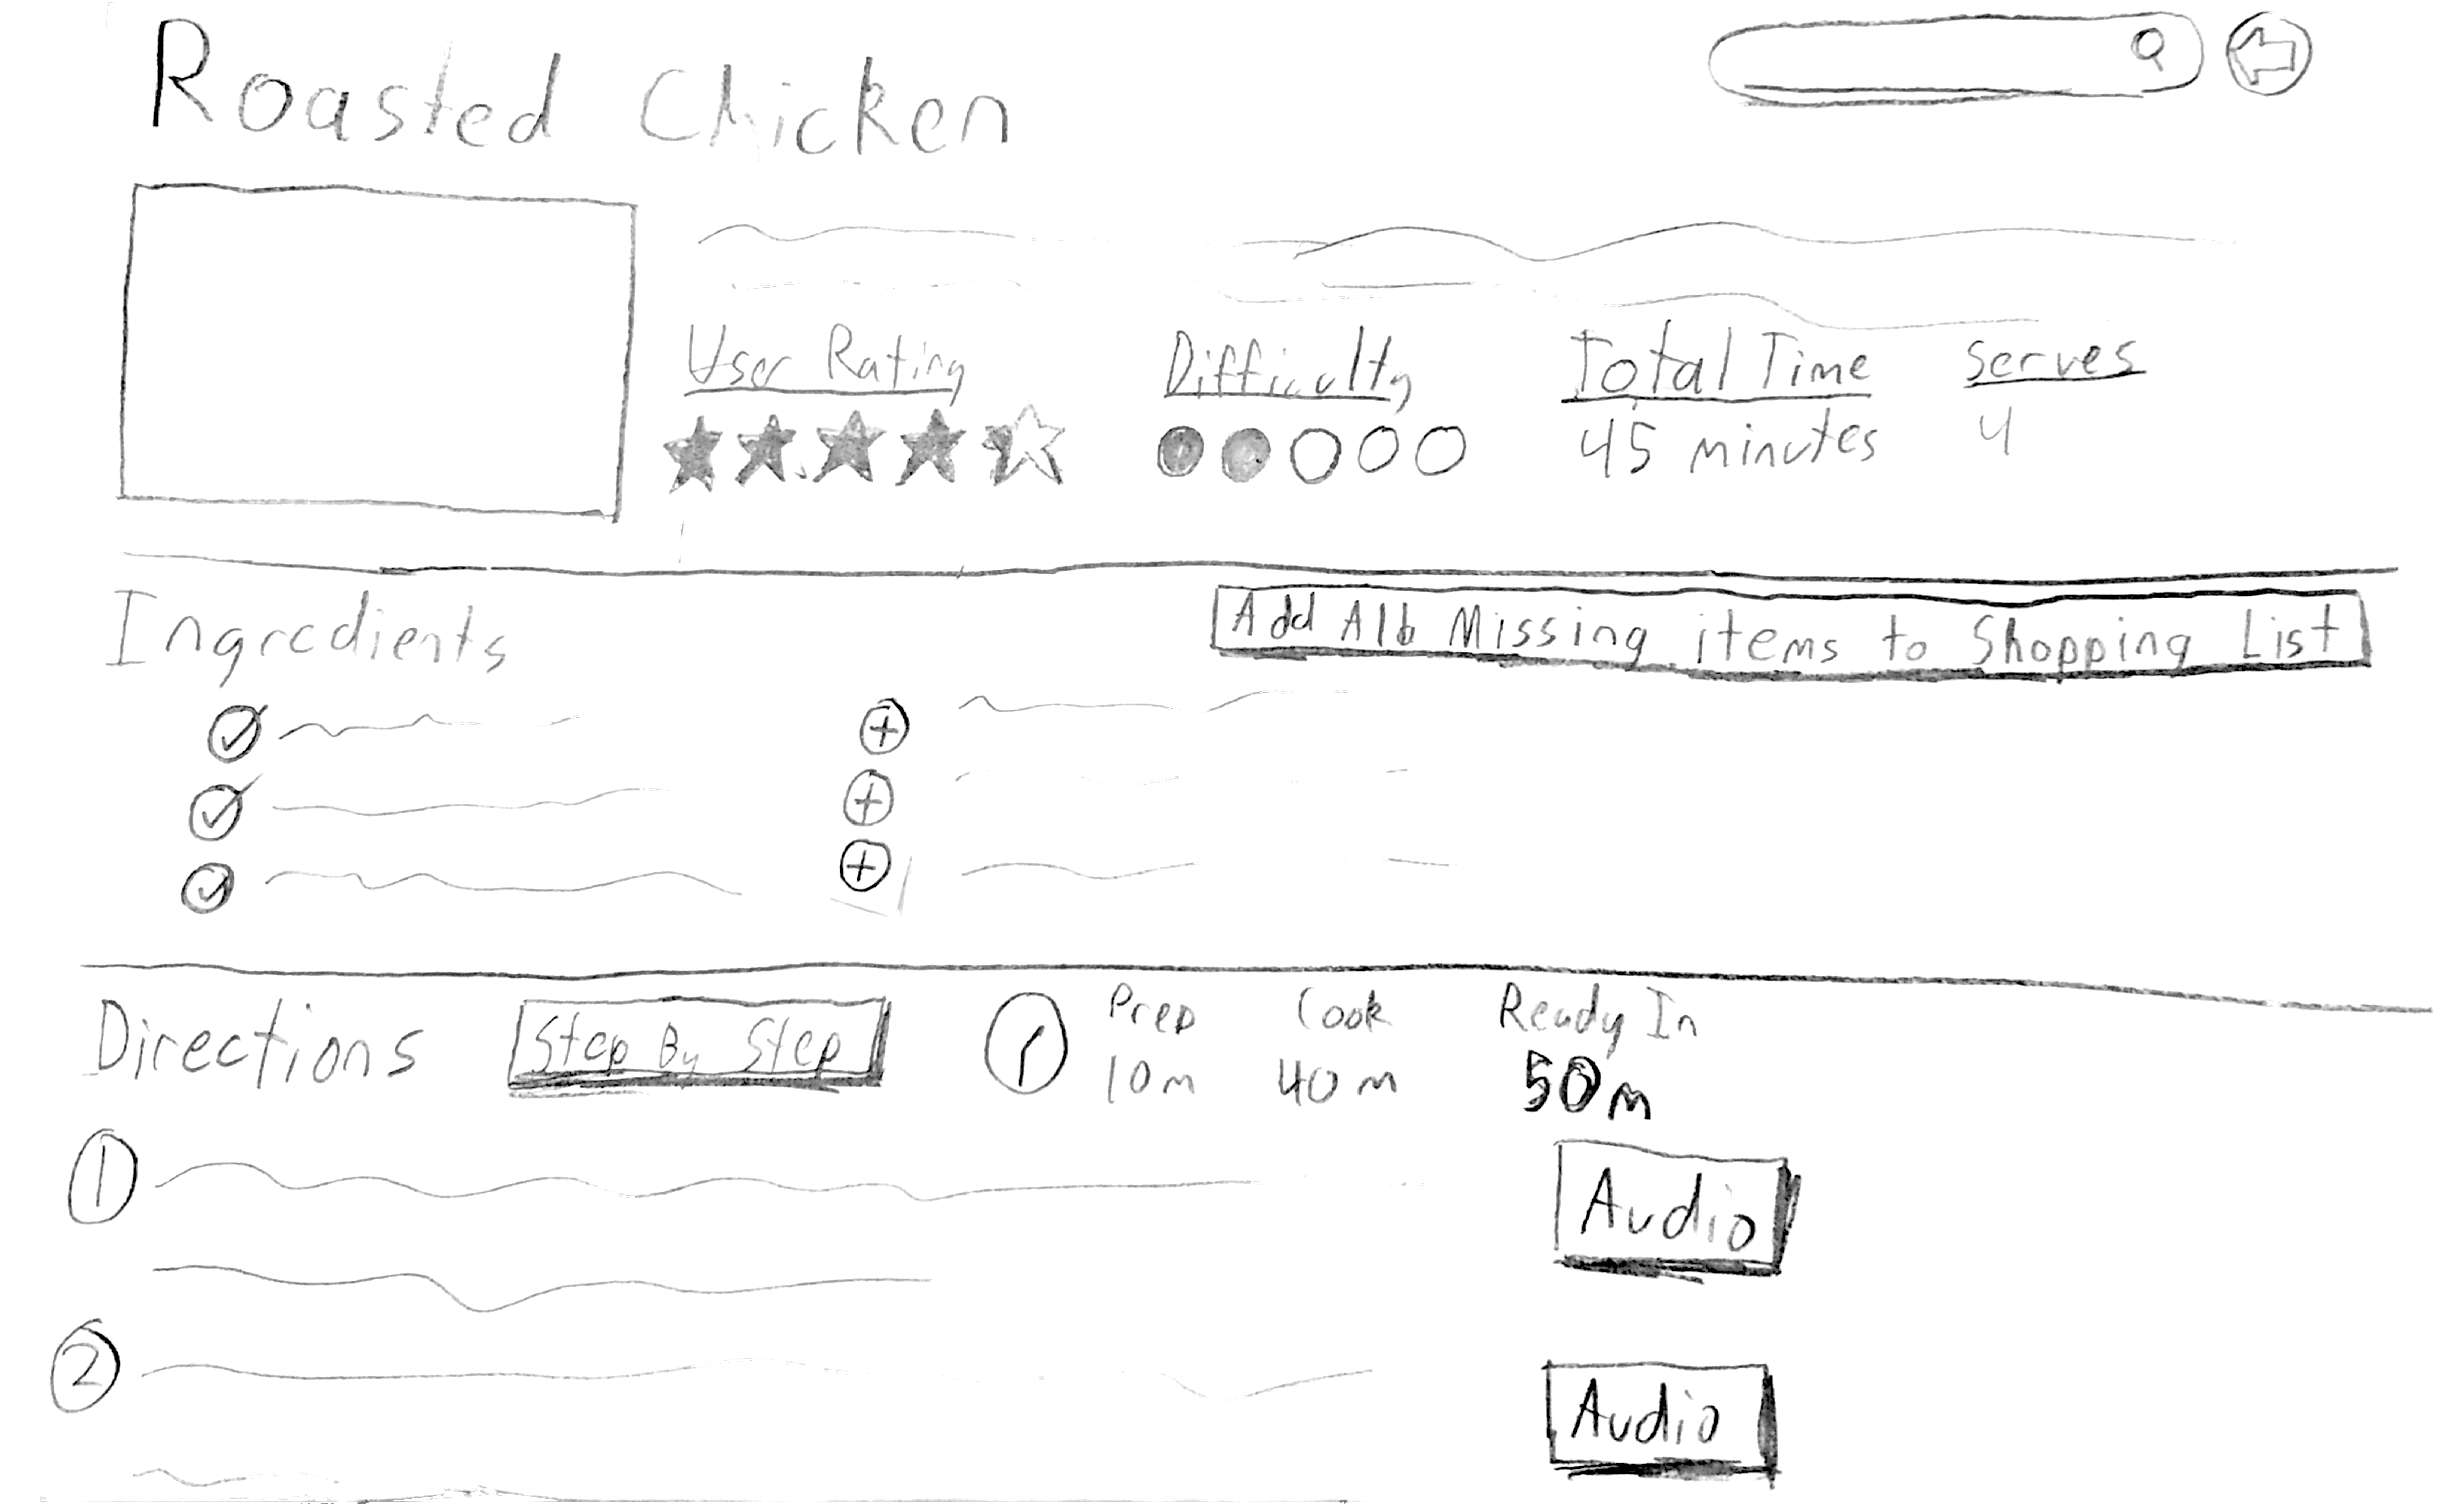 Roasted Chicken
User Rating
Difficulty
Total Time
Serves
45 minutes
4
Ingredients
Add All Missing items to Shopping List
Directions
Step By Step
Prep
Cook
Ready In
10m
40m
50m
1
Audio
2
Audio